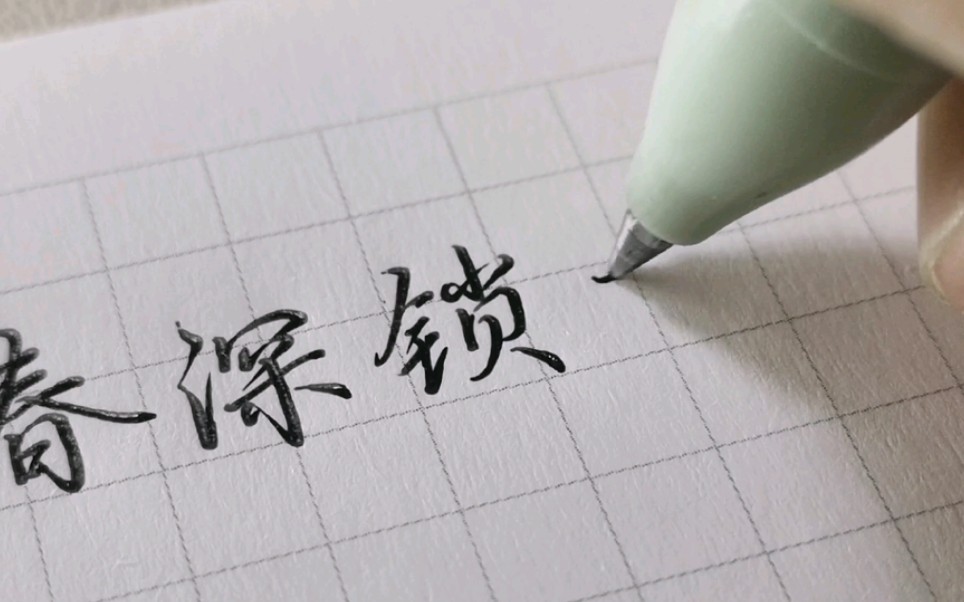 春深锁